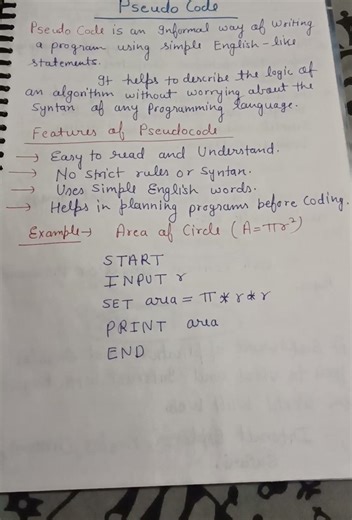 Pseudo Code
Pseudo Code is an Informal way of writing
a program using simple English-like
statements.
It helps to describe the logic of
an algorithm without worrying about the
Syntan of any Programming language.
Features of Pseudocode
→ Easy to read and Understand.
→ No Strict rules or Syntan.
→ Uses Simple English words.
→ Helps in planning programs before Coding.
Example→ Area of Circle (A=πr²)
START
INPUT r
SET area = π * r * r
PRINT area
END